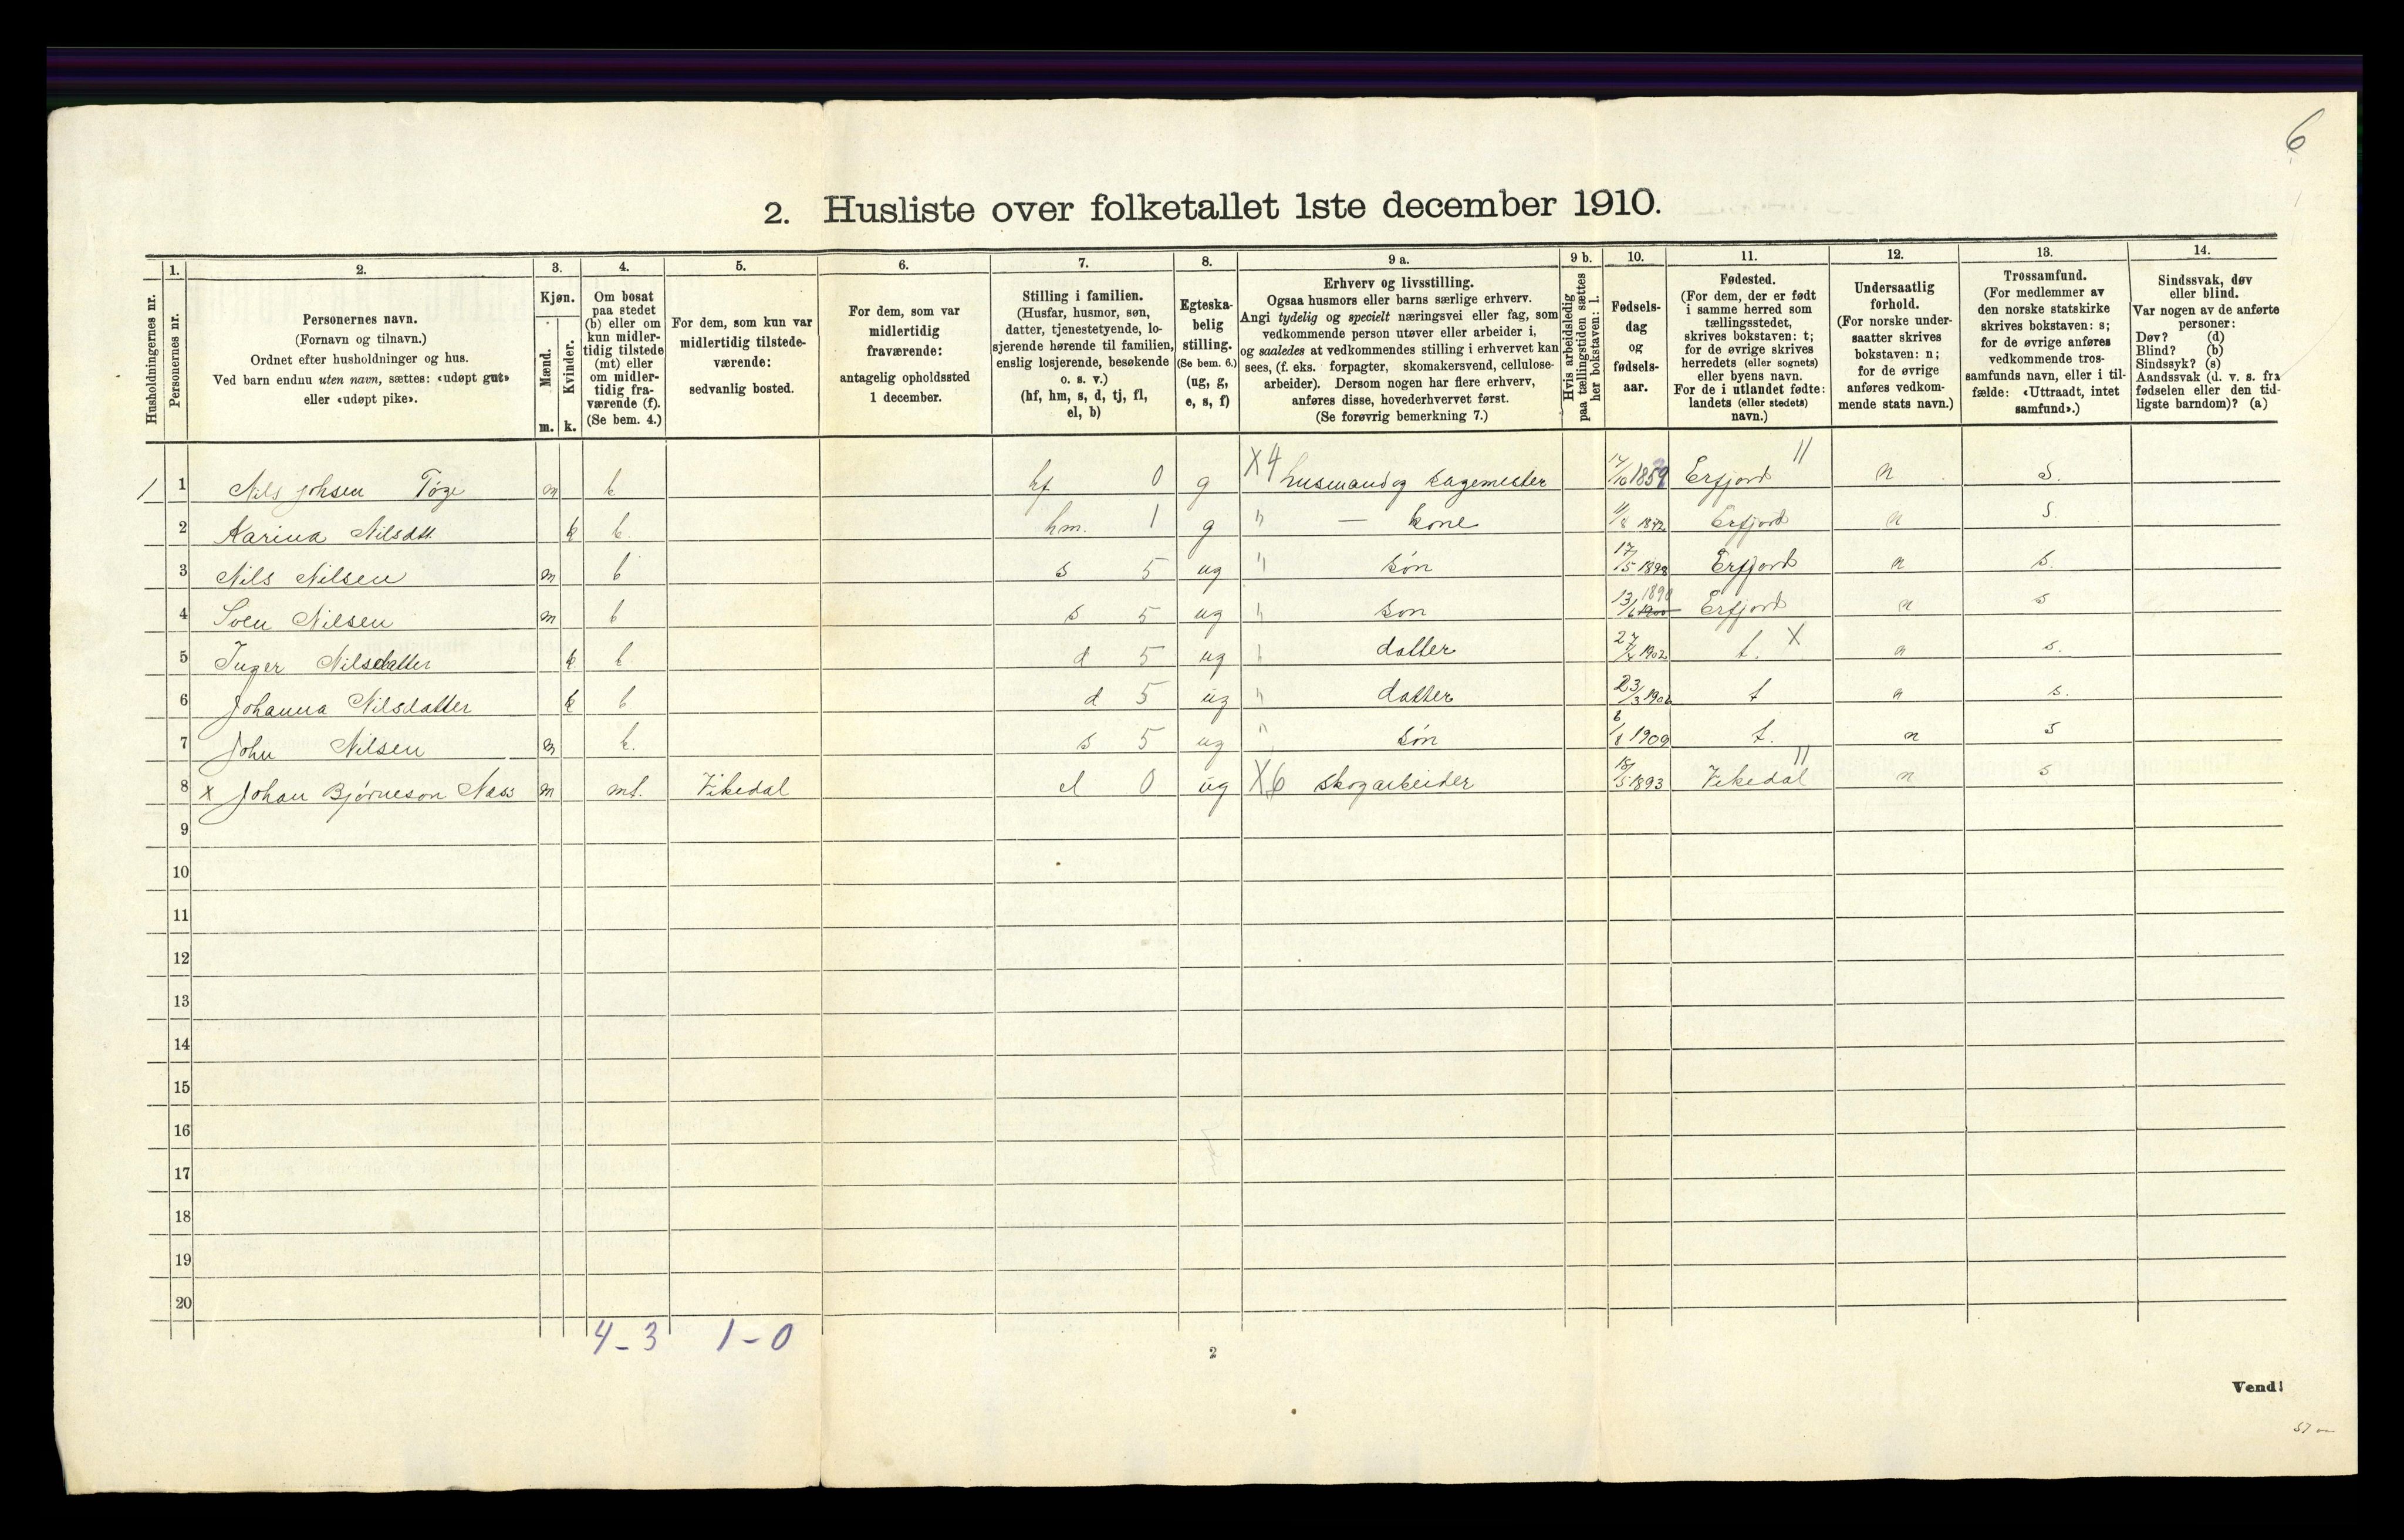 6
2. Husliste over folketallet 1ste december 1910.
Husholdningernes nr.
1. Personernes nr.
2. Personernes navn. (Fornavn og tilnavn.) Ordnet efter husholdninger og hus. Ved barn endnu uten navn, sættes: «udøpt gut» eller «udøpt pike».
3. Kjøn. Mænd. m. Kvinder. k.
4. Om bosat paa stedet (b) eller om kun midlertidig tilstede (mt) eller om midlertidig fraværende (f). (Se bem. 4.)
5. For dem, som kun var midlertidig tilstedeværende: sedvanlig bosted.
6. For dem, som var midlertidig fraværende: antagelig opholdssted 1 december.
7. Stilling i familien. (Husfar, husmor, søn, datter, tjenestetyende, losjerende hørende til familien, enslig losjerende, besøkende o. s. v.) (hf, hm, s, d, tj, fl, el, b)
8. Egteskabelig stilling. (Se bem. 6.) (ug, g, e, s, f)
9 a. Erhverv og livsstilling. Ogsaa husmors eller barns særlige erhverv. Angi tydelig og specielt næringsvei eller fag, som vedkommende person utøver eller arbeider i, og saaledes at vedkommendes stilling i erhvervet kan sees, (f. eks. forpagter, skomakersvend, cellulosearbeider). Dersom nogen har flere erhverv, anføres disse, hovederhvervet først. (Se forøvrig bemerkning 7.)
9 b. Hvis arbeidsledig paa tællingstiden sættes her bokstaven: l.
10. Fødselsdag og fødselsaar.
11. Fødested. (For dem, der er født i samme herred som tællingsstedet, skrives bokstaven: t; for de øvrige skrives herredets (eller sognets) eller byens navn. For de i utlandet fødte: landets (eller stedets) navn.)
12. Undersaatlig forhold. (For norske undersaatter skrives bokstaven: n; for de øvrige anføres vedkommende stats navn.)
13. Trossamfund. (For medlemmer av den norske statskirke skrives bokstaven: s; for de øvrige anføres vedkommende trossamfunds navn, eller i tilfælde: «Uttraadt, intet samfund».)
14. Sindssvak, døv eller blind. Var nogen av de anførte personer: Døv? (d) Blind? (b) Sindssyk? (s) Aandssvak (d. v. s. fra fødselen eller den tidligste barndom)? (a)
1 1 Nils Johsen Tøge m b hf 0 g X4 husmand og sagemester 14/10 1859 Erfjord 11 n s.
2 Karina Nilsdtt k b. hm. 1 g " — kone 11/8 1872 Erfjord n s.
3 Nils Nilsen m b s 5 ug " søn 17/5 1898 Erfjord n s.
4 Sven Nilsen m b s 5 ug " søn 13/6 1900 1890 Erfjord n s
5 Inger Nilsdatter k b d 5 ug " datter 27/4 1902 t. X n s.
6 Johanna Nilsdatter k b d 5 ug " datter 23/3 1906 t n s.
7 John Nilsen m b. s 5 ug " søn 6/8 1909 t. n s
8 x Johan Bjørneson Næss m mt. Vikedal el 0 ug X6 skogarbeider 18/5 1893 Vikedal 11 n s
9
10
11
12
13
14
15
16
17
18
19
20
4-3 1-0
2
Vend!